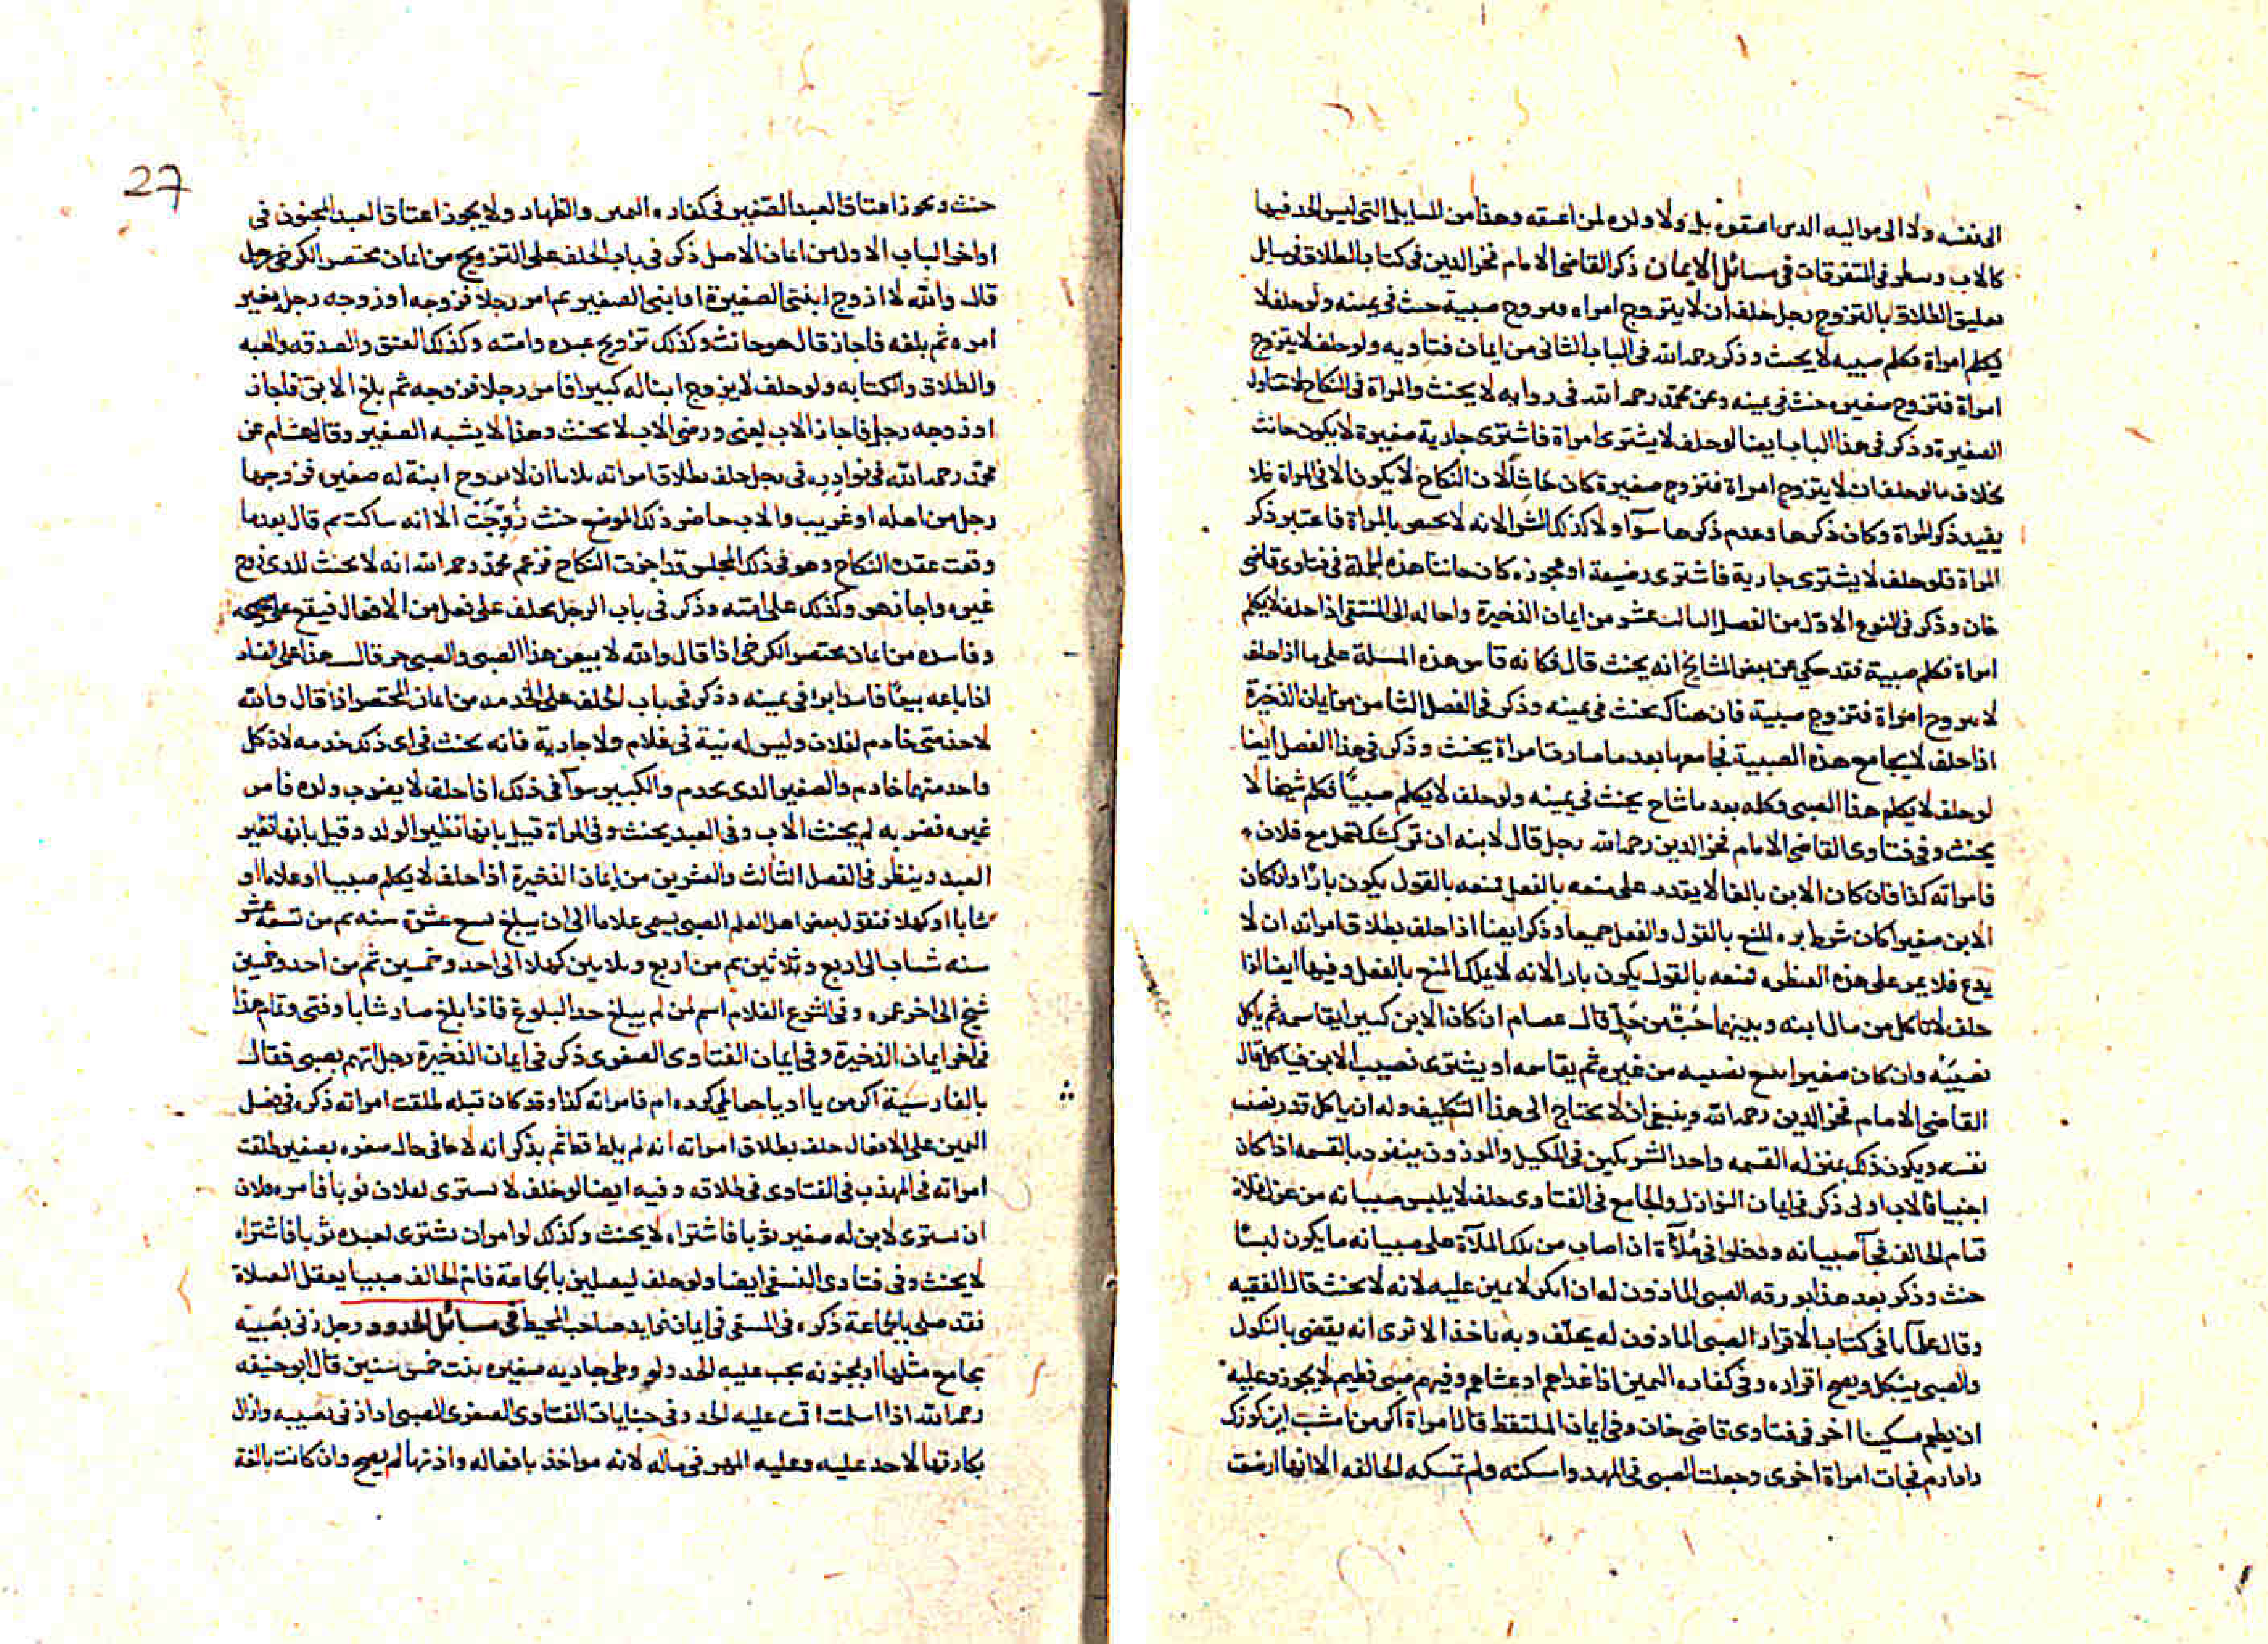 الى نفسه ولا الى مواليه الذين اعتقوه بل ولا ولده لمن اعتقه وهذا من المسايل التى ليس الجد فيها
كالاب وسطر فى المتفرقات فى مسائل الايمان ذكر القاضى الامام فخر الدين فى كتاب الطلاق فى مسايل
تعليق الطلاق بالتزوج رجل حلف ان لا يتزوج امراه فتزوج صبية حنث فى يمينه ولو حلف لا
يكلم امراة فكلم صبيه لا يحنث وذكر رحمه الله فى الباب الثانى من ايمان فتاويه ولو حلف لا يتزوج
امراة فتزوج صغيره حنث فى يمينه وعن محمد رحمه الله فى روايه لا يحنث والمراة فى النكاح لا تتناول
الصغيرة وذكر فى هذا الباب ايضا لو حلف لا يشترى امراة فاشترى جارية صغيرة لا يكون حانثا
بخلاف ما لو حلف ان لا يتزوج امراة فتزوج صغيرة كان حانثا لان النكاح لا يكون الا فى المراة فلا
يفيد ذكر المراة وكان ذكرها وعدم ذكرها سوآ ولا كذلك الشرا لانه لا يختص بالمراة فاعتبر ذكر
المراة فلو حلف لا يشترى جارية فاشترى رضيعة او عجوزه كان حانثا هذه الجملة فى فتاوى قاضى
خان وذكر فى النوع الاول من الفصل الثالث عشر من ايمان الذخيرة واحاله الى المنتقى اذا حلف لا يكلم
امراة فكلم صبية فقد حكي عن بعض المشايخ انه يحنث قال فكانه قاس هذه المسلة على ما اذا حلف
لا يتزوج امراة فتزوج صبية فان هناك يحنث فى يمينه وذكر فى الفصل الثامن من ايمان الذخيرة
اذا حلف لا يجامع هذه الصبية فجامعها بعد ما صارت امراة يحنث وذكر فى هذا الفصل ايضا
لو حلف لا يكلم هذا الصبى وكلمه بعد ما شاخ يحنث فى يمينه ولو حلف لا يكلم صبيًا فكلم شيخا لا
يحنث وفى فتاوى القاضى الامام فخر الدين رحمه الله رجل قال لابنه ان تركتك تعمل مع فلان
فامراته كذا فان كان الابن بالغا لا يقدر على منعه بالفعل فمنعه بالقول يكون بارًا وان كان
الابن صغيرا كان شرط بره المنع بالقول والفعل جميعا وذكر ايضا اذا حلف بطلاق امراته ان لا
يدع فلانا يمر على هذه القنطره فمنعه بالقول يكون بارا لانه لا يملك المنع بالفعل وفيها ايضا اذا
حلف لا ياكل من مال ابنه وبينهما قال عصام ان كان الابن كبيرا يقاسمه ثم ياكل
نصيبه وان كان صغيرا نصيبه من غيره ثم يقاسمه او يشترى نصيب الابن فياكل قال
القاضى الامام فخر الدين رحمه الله وينبغى ان لا يحتاج الى هذا التكليف وله ان ياكل قدر نصف
نفسه ويكون ذلك بمنزله القسمه واحد الشريكين فى المكيل والموزون ينفرد بالقسمه اذا كان
اجنبيا فالاب اولى ذكر فى ايمان النوازل والجامع فى الفتاوى حلف لا يلبس صبيانه من غزل فلانة
فنام الحالف فجآ صبيانه ودخلوا فى مُلأة ان اصاب من تلك الملآة على صبيانه ما يكون لبسًا
حنث وذكر بعد هذا بورقه الصبى الماذون له ان انكر لا يمين عليه لانه لا يحنث قال الفقيه
وقال علمآنا فى كتاب الاقرار الصبى الماذون له يحلف وبه ناخذ الا ترى انه يقضى بالنكول
والصبى ينكل ويصح اقراره وفى كفاره اليمين اذا غداهم او عشاهم وفيهم صبى فطيم لا يجوز وعليه
ان يطعم مسكينا اخر فى فتاوى قاضى خان وفى ايمان الملتقط قال امراة اكر من امشب اين كودك
رادارم فجات امراة اخرى وجعلت الصبى فى المهد واسكنته ولم تمسكه الحالفه الا انها ارضعت
27
حنث ويجوز اعتاق العبد الصغير فى كفاره اليمين والظهار ولا يجوز اعتاق العبد المجنون فى
اواخر الباب الاول من ايمان الاصل ذكر فى باب الحلف على التزويج من ايمان مختصر الكرخى رجل
قال والله لا ازوج ابنتى الصغيرة او ابنى الصغير ثم امر رجلا فزوجه او زوجه رجل بغير
امره ثم بلغه فاجاز قال هو حانث وكذلك تزويج عبده وامته وكذلك العتق والصدقه والهبه
والطلاق والكتابه ولو حلف لا يزوج ابنا له كبيرا فامر رجلا فزوجه ثم بلغ الابن فاجاز
او زوجه رجل فاجاز الاب يعنى ورضى الاب لا يحنث وهذا لا يشبه الصغير وقال هشام عن
محمد رحمه الله فى نوادره فى رجل حلف بطلاق امراته ثلاثا ان لا يزوج ابنة له صغيره فزوجها
رجل من اهله او غريب والاب حاضر ذلك الموضع حنث زُوّجَتْ الا انه ساكت ثم قال بعدما
وقعت عقده النكاح وهو فى ذلك المجلس قد اجزت النكاح فزعم محمد رحمه الله انه لا يحنث للذى زوج
غيره واجاز هو وكذلك على امته وذكر فى باب الرجل يحلف على فعل من الافعال فيقع على صحيحه
وفاسده من ايمان مختصر الكرخى اذا قال والله لا يبيعن هذا الصبى والصبى حر قال هذا على الفساد
اذا باعه بيعًا فاسدا بر فى يمينه وذكر فى باب الحلف على الخدمه من ايمان المختصر اذا قال والله
لا خدمتى خادم لفلان وليس له نية فى غلام ولا جارية فانه يحنث فى اى ذلك خدمه لان كل
واحد منهما خادم والصغير الذى يخدم والكبير سوآ فى ذلك اذا حلف لا يضرب ولده فامر
غيره فضربه لم يحنث الاب وفى العبد يحنث وفى المراة قيل بانها نظير الولد وقيل بانها نظير
العبد وينظر فى الفصل الثالث والعشرين من ايمان الذخيرة اذا حلف لا يكلم صبيا او غلاما او
شابا او كهلا فنقول بعض اهل العلم الصبى يسمى غلاما الى ان يبلغ تسع عشرة سنه ثم من تسعة عشر
سنه شاب الى اربع وثلاثين ثم من اربع وثلاثين كهلا الى احد وخمسين ثم من احد وخمسين
شيخ الى اخر عمره وفى الشرع الغلام اسم لمن لم يبلغ حد البلوغ فاذا بلغ صار شابا وفتى وتمام هذا
فى اخر ايمان الذخيرة وفى ايمان الفتاوى الصغرى ذكر فى ايمان الذخيرة رجل اتهم بصبى فقال
بالفارسية اكر من با او بى حفاظى كرده ام فامراته كذا وقد كان قبله طلقت امراته ذكره فى فصل
اليمين على الافعال حلف بطلاق امراته انه لم يلط قط ثم يذكر انه لاط فى حال صغره بصغير طلقت
امراته فى المهذب فى الفتاوى فى طلاقه وفيه ايضا لو حلف لا يشترى لفلان ثوبا فامره فلان
ان يشترى لابن له صغير ثوبا فاشتراه لا يحنث وكذلك لو امر ان يشترى لعبده ثوبا فاشتراه
لا يحنث وفى فتاوى النسفى ايضا ولو حلف ليصلين بالجماعة فام الحالف صبيا يعقل الصلاة
فقد صلى بالجماعة ذكره فى فى ايمان صاحب المحيط فى مسائل الحدود رجل زنى بصبية
يجامع مثلها او بمجنونه يجب عليه الحد ولو وطى جاريه صغيره بنت خمس سنين قال ابو حنيفه
رحمه الله اذا اقمت عليه الحد وفى جنايات الفتاوى الصغرى الصبى اذا زنى بصبيه وازال
بكارتها لا حد عليه وعليه المهر فى ماله لانه مواخذ بافعاله واذنها لم يصح وان كانت بالغة